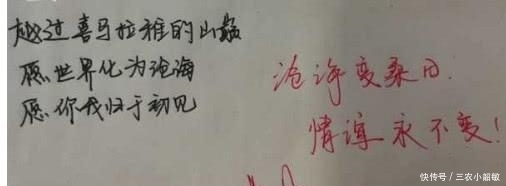 越过喜马拉雅的山巅
愿世界化为沧海
愿你我归于初见
沧海变桑田.
情谊永不变!
快传号 / 三农小韶敏